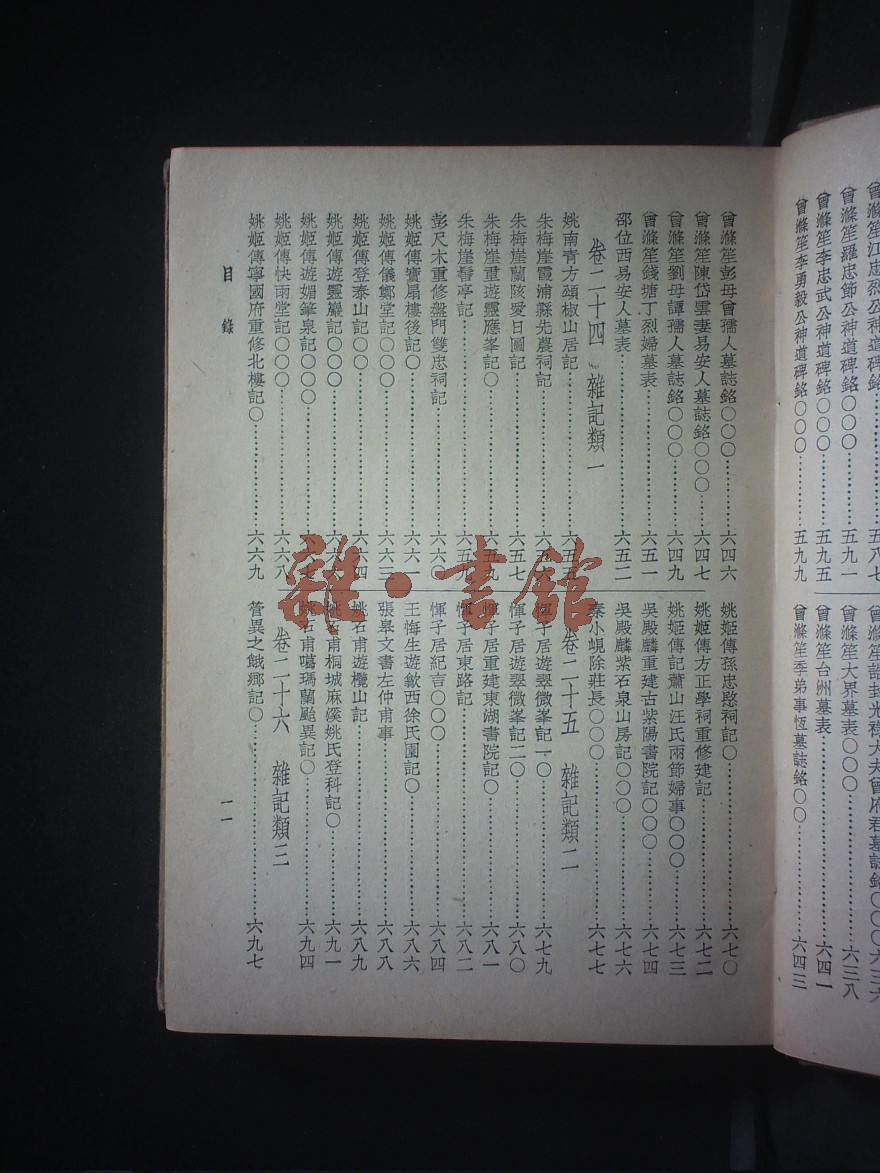 曾滌笙江忠烈公神道碑銘……五八七
曾滌笙羅忠節公神道碑銘〇〇〇……五九一
曾滌笙李忠武公神道碑銘〇〇〇……五九五
曾滌笙李勇毅公神道碑銘〇〇〇……五九九
曾滌笙誥封光祿大夫曾府君墓誌銘〇〇〇六三六
曾滌笙大界墓表〇〇〇……六三八
曾滌笙台洲墓表……六四一
曾滌笙季弟事恆墓誌銘〇〇……六四三
曾滌笙彭母曾孺人墓誌銘〇〇〇……六四六
曾滌笙陳岱雲妻易安人墓誌銘〇〇〇……六四七
曾滌笙劉母譚孺人墓誌銘〇〇〇……六四九
曾滌笙錢塘丁烈婦墓表……六五一
邵位西易安人墓表……六五二
卷二十四 雜記類一
姚南青方頦椒山居記……六五五
朱梅崖霞浦縣先農祠記
朱梅崖蘭陔愛日圖記……六五七
朱梅崖重遊靈應峯記〇
朱梅崖髻亭記……六五九
彭尺木重修盤門雙忠祠記……六六〇
姚姬傳寶扇樓後記〇……六六一
姚姬傳儀鄭堂記〇〇……六六三
姚姬傳登泰山記〇〇……六六四
姚姬傳遊靈巖記〇〇〇
姚姬傳遊媚筆泉記〇〇〇
姚姬傳快雨堂記〇〇〇……六六八
姚姬傳寧國府重修北樓記〇……六六九
姚姬傳孫忠愍祠記〇……六七〇
姚姬傳方正學祠重修建記……六七二
姚姬傳記蕭山汪氏兩節婦事〇〇〇……六七三
吳殿麟重建古紫陽書院記〇〇〇……六七四
吳殿麟紫石泉山房記〇〇〇……六七六
秦小峴除莊長〇〇〇……六七七
卷二十五 雜記類二
惲子居遊翠微峯記一〇……六七九
惲子居遊翠微峯記二〇……六八〇
惲子居重建東湖書院記〇……六八一
惲子居東路記……六八二
惲子居紀言〇〇〇……六八四
王悔生遊歙西徐氏園記〇……六八六
張皋文書左仲甫事……六八八
姚石甫遊欖山記……六八九
姚石甫桐城麻溪姚氏登科記〇……六九一
姚石甫噶瑪蘭颱異記〇……六九四
卷二十六 雜記類三
管異之餓鄉記〇……六九七
目錄
一一
雜·書館